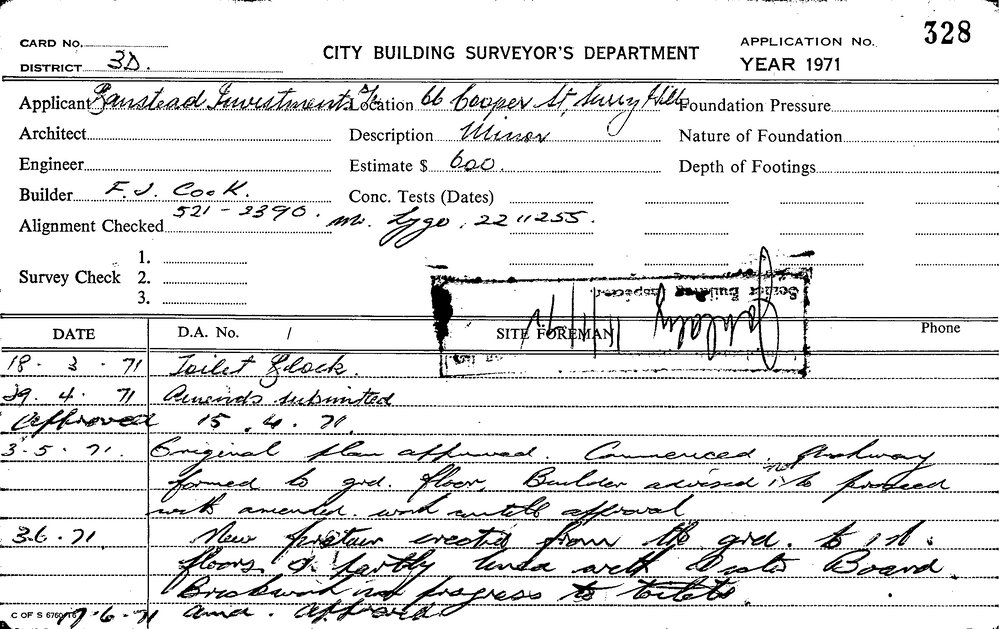 328
CARD No.
CITY BUILDING SURVEYOR'S DEPARTMENT
APPLICATION No.
DISTRICT 3D.
YEAR 1971
Applicant Banstead Investments Location 66 Cooper St, Surry Hills Foundation Pressure
Architect Description Minor Nature of Foundation
Engineer Estimate $ 600. Depth of Footings
Builder F. J. Cook. Conc. Tests (Dates)
521-2390.
Alignment Checked Mr. Lygo. 2211255.
1.
Survey Check 2.
3.
Senior Building Inspector
DATE D.A. No. / SITE FOREMAN Phone
18. 3. 71 Toilet Block.
29. 4. 71 Amends submitted
Approved 15. 4. 71.
3. 5. 71. Original plan approved. Commenced.
formed to grd. floor, Builder advised not to proceed
with amended work until approval
3.6.71. New erected from the grd. to 1st.
floors & partly lined with Board
Brickwork in progress to toilets
C OF S 6.71 amd. approved